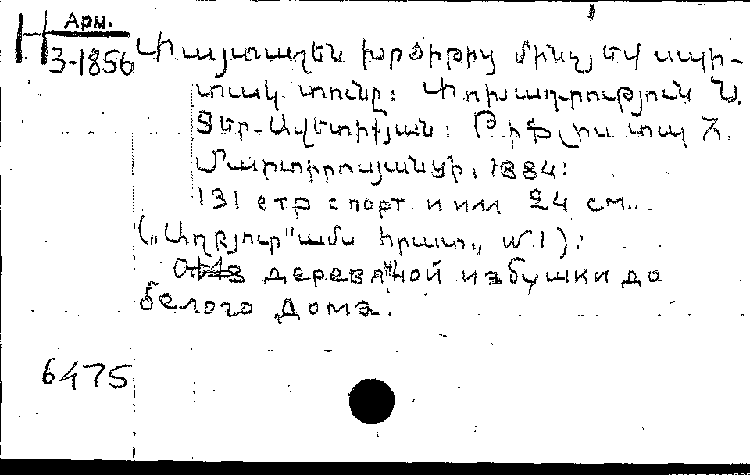 Н Арм.
3-1856
Փայտաղեն խրճիթից մինչեվ սպի-
տակ տունը: Փոխադրություն Ն.
Տեր-Ավետիքյան: Թիֆլիս տպ Հ.
Մարտիրոսյանցի, 1884:
131 стр с порт и илл 24 см..
(„Աղբյուր" ամս հրատ„ № 1):
От деревянной избушки до
белого Дома.
6475